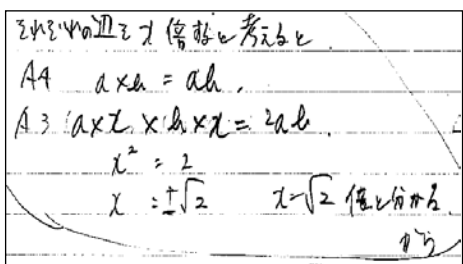 それぞれの辺を x 倍すると考えると
A4 a×b = ab.
A3 a×x × b×x = 2ab.
x² = 2
x = ±√2 x=√2 倍と分かる.
から